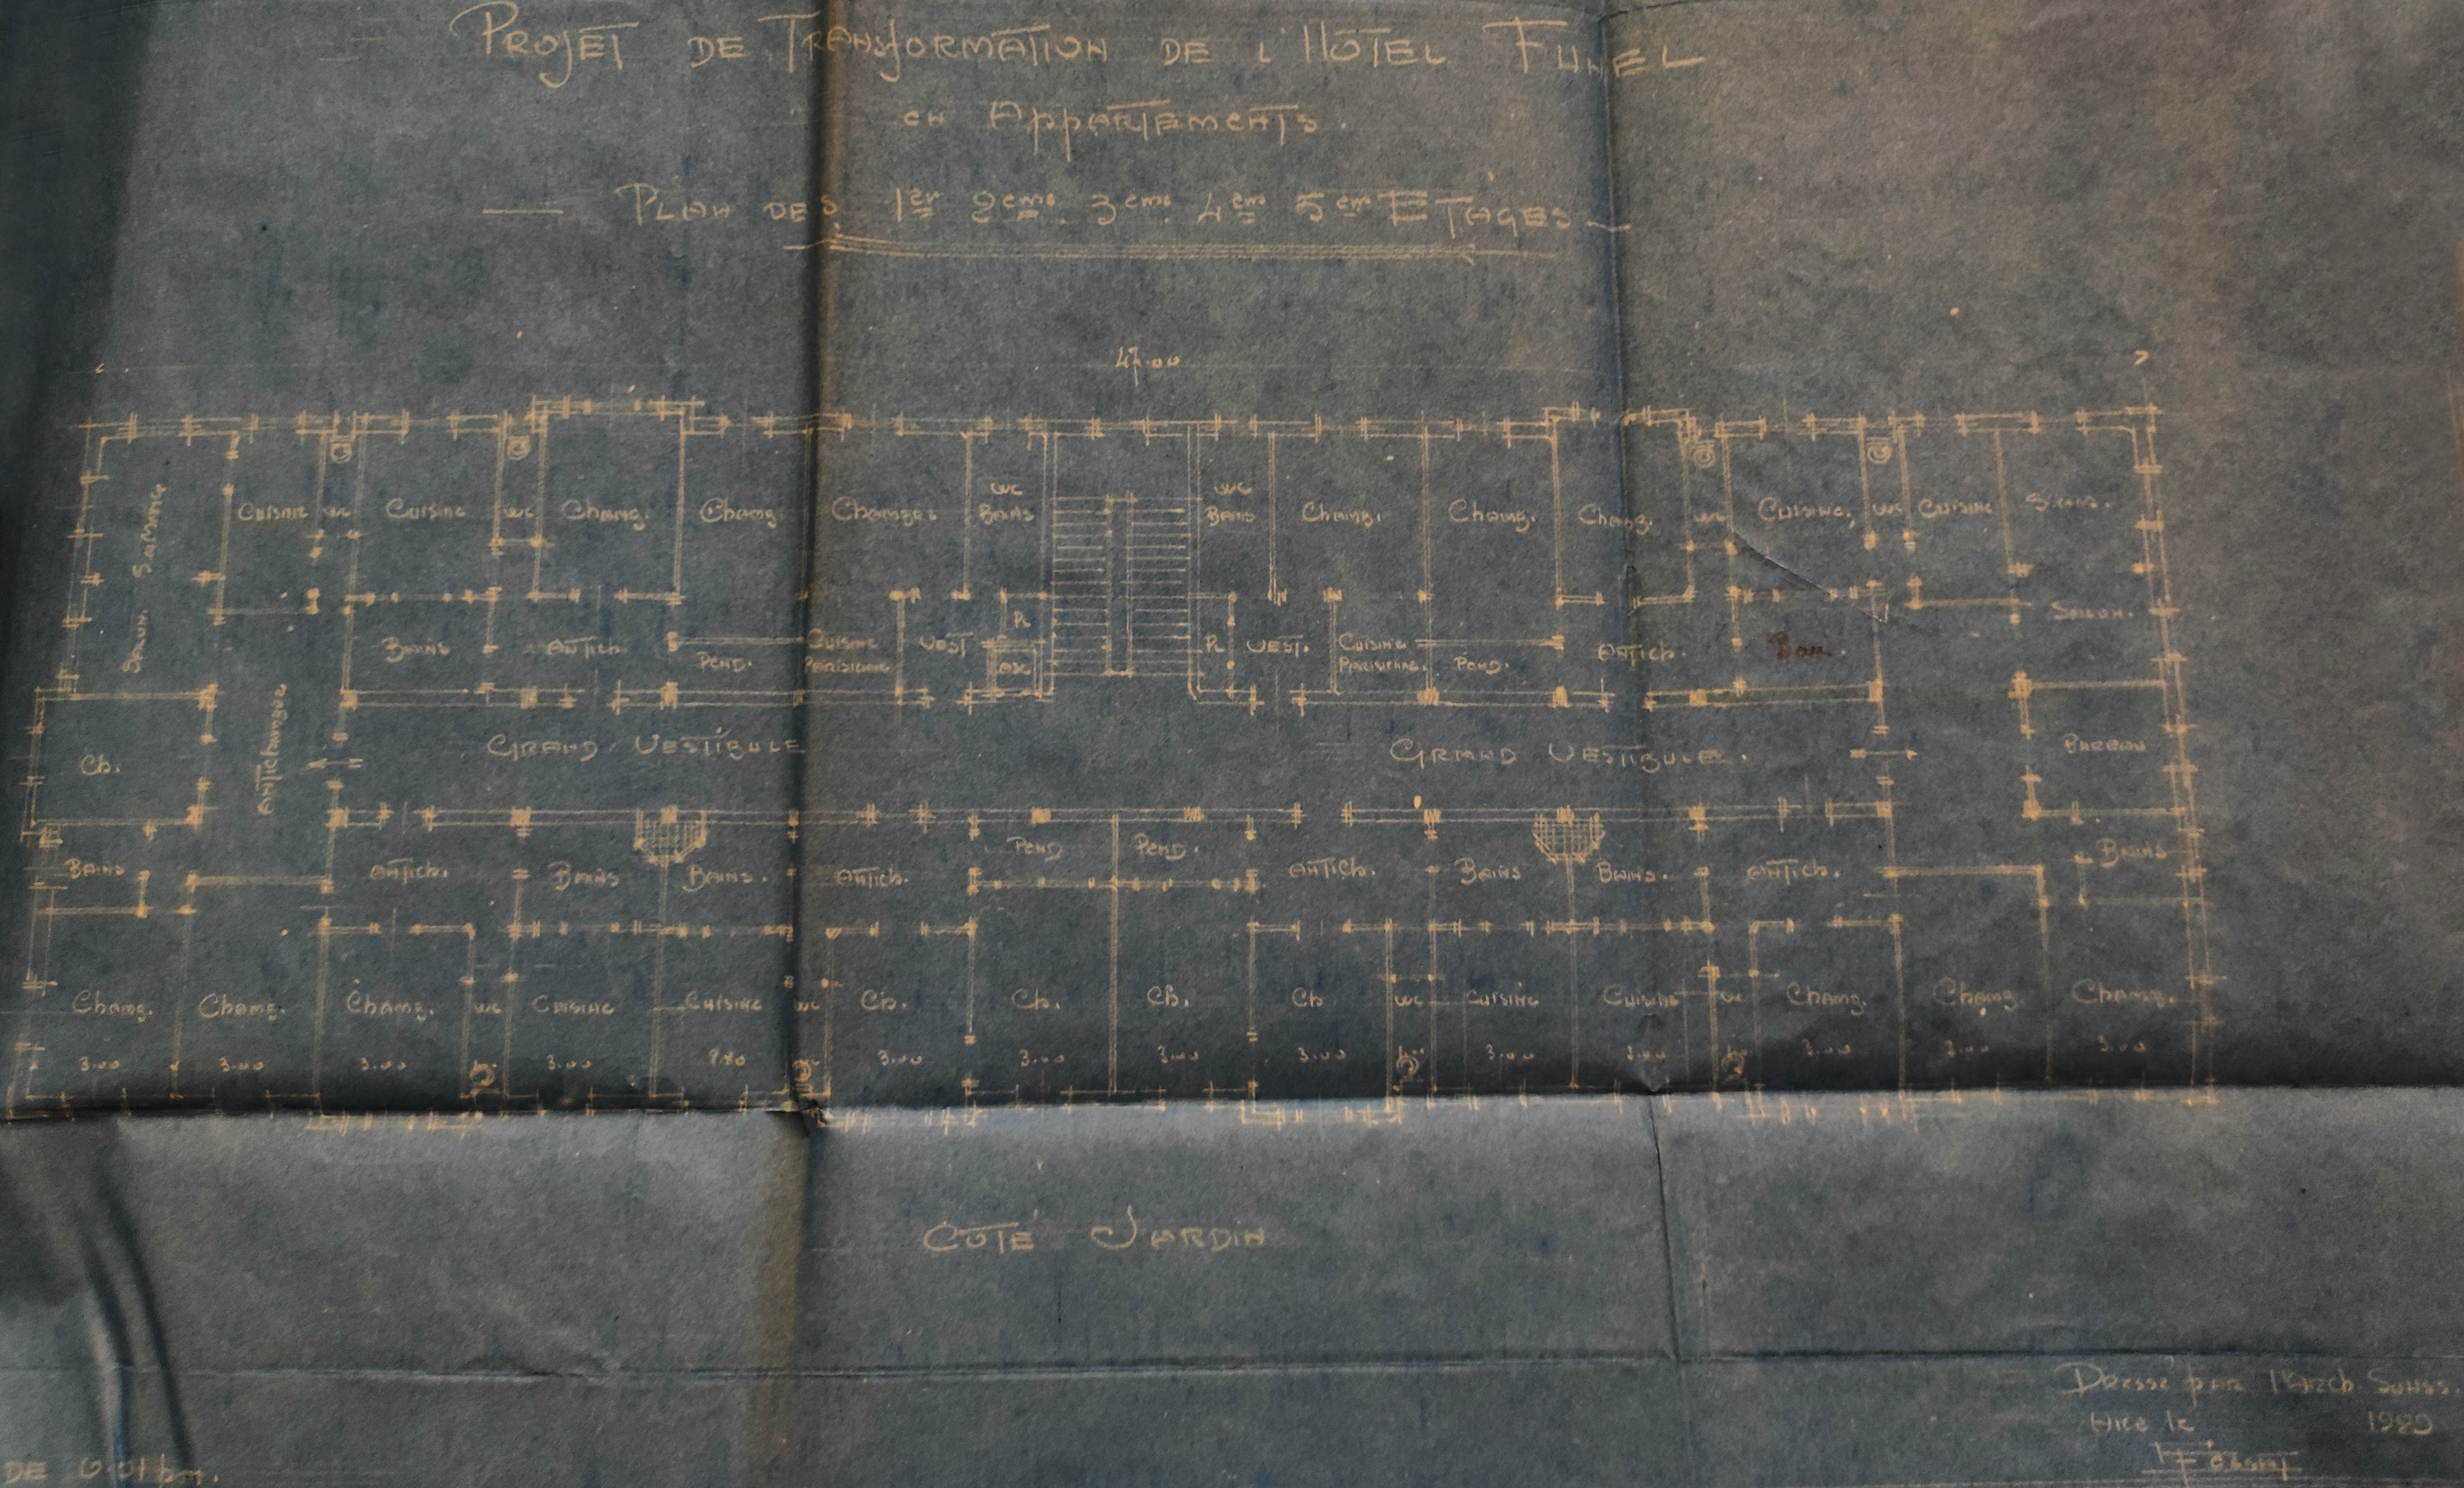 PROJET DE TRANSFORMATION DE L'HÔTEL FUNEL
EN APPARTEMENTS.
PLAN DES 1er 2ème 3ème 4ème 5ème ETAGES
47.00
CUISINE WC CUISINE WC CHAMB. CHAMB. CHAMBRE WC BAINS WC BAINS CHAMB. CHAMB. CHAMB. WC CUISINE WC CUISINE
BAINS ANTICH. PEND. CUISINE PARISIENNE VEST PL ASC PL VEST. CUISINE PARISIENNE PEND. ANTICH. Bain. SALON.
CH. ANTICHAMBRE GRAND VESTIBULE GRAND VESTIBULE. BUREAU
BAINS ANTICH. BAINS BAINS. ANTICH. PEND. PEND. ANTICH. BAINS BAINS. ANTICH. BAINS
CHAMB. CHAMB. CHAMB. WC CUISINE CUISINE WC CH. CH. CH. CH WC CUISINE CUISINE WC CHAMB. CHAMB. CHAMB.
3.00 3.00 3.00 3.00 3.00 3.00 3.00 3.00 3.00 3.00 3.00 3.00
CÔTÉ JARDIN
DRESSÉ PAR l'ARCH.
NICE le 1929
DE 0.01 p.m.